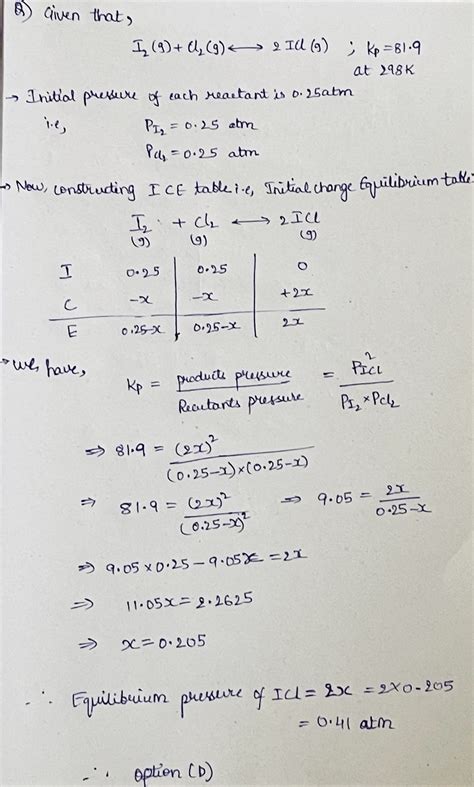 Q) Given that,
I₂(g) + Cl₂(g) ⟷ 2ICl(g) ; Kp = 81.9
at 298K
→ Initial pressure of each reactant is 0.25atm
i.e, P_I₂ = 0.25 atm
P_Cl₂ = 0.25 atm
→ Now, constructing ICE table i.e, Initial change Equilibrium table:
I₂ + Cl₂ ⟷ 2ICl
(g) (g) (g)
I 0.25 0.25 0
C -x -x +2x
E 0.25-x 0.25-x 2x
→ We have,
Kp = products pressure / Reactants pressure = P²_ICl / P_I₂ × P_Cl₂
⇒ 81.9 = (2x)² / (0.25-x)×(0.25-x)
⇒ 81.9 = (2x)² / (0.25-x)² ⇒ 9.05 = 2x / 0.25-x
⇒ 9.05 × 0.25 - 9.05x = 2x
⇒ 11.05x = 2.2625
⇒ x = 0.205
∴ Equilibrium pressure of ICl = 2x = 2×0.205
= 0.41 atm
∴ option (D)